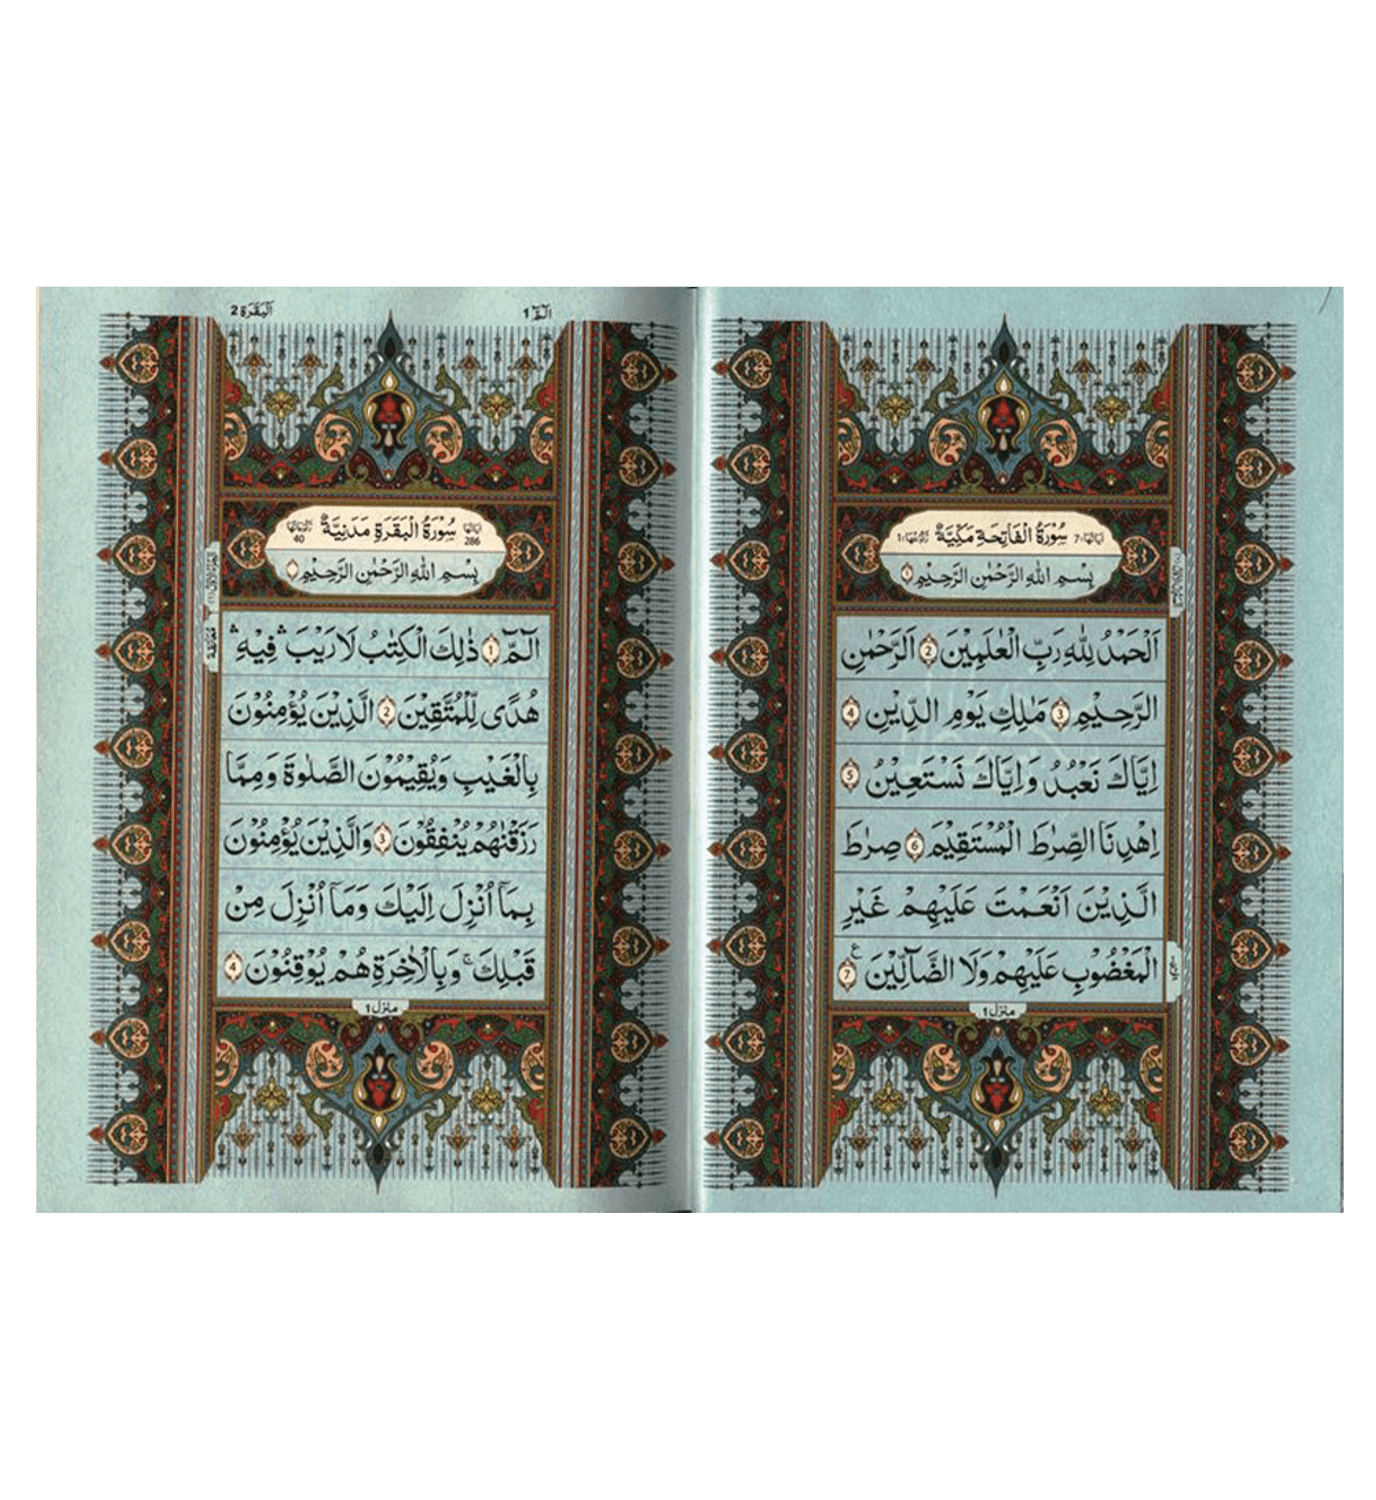 سُوْرَةُ الْفَاتِحَةِ مَكِّيَّةٌ
اٰيَاتُهَا: 7
رُكُوْعُهَا: 1
بِسْمِ اللّٰهِ الرَّحْمٰنِ الرَّحِيْمِ ۝۱
اَلْحَمْدُ لِلّٰهِ رَبِّ الْعٰلَمِيْنَ ۝2 اَلرَّحْمٰنِ
الرَّحِيْمِ ۝3 مٰلِكِ يَوْمِ الدِّيْنِ ۝4
اِيَّاكَ نَعْبُدُ وَاِيَّاكَ نَسْتَعِيْنُ ۝5
اِهْدِنَا الصِّرٰطَ الْمُسْتَقِيْمَ ۝6 صِرٰطَ
الَّذِيْنَ اَنْعَمْتَ عَلَيْهِمْ غَيْرِ
الْمَغْضُوْبِ عَلَيْهِمْ وَلَا الضَّآلِّيْنَ ۝7 ع
منزل 1
الٓمّٓ 1
اَلْبَقَرَة 2
اٰيَاتُهَا 286
سُوْرَةُ الْبَقَرَةِ مَدَنِيَّةٌ
رُكُوْعَاتُهَا 40
بِسْمِ اللّٰهِ الرَّحْمٰنِ الرَّحِيْمِ
الٓمّٓ ۝1 ذٰلِكَ الْكِتٰبُ لَا رَيْبَ ۛ فِيْهِ ۛ
هُدًى لِّلْمُتَّقِيْنَ ۝2 الَّذِيْنَ يُؤْمِنُوْنَ
بِالْغَيْبِ وَيُقِيْمُوْنَ الصَّلٰوةَ وَمِمَّا
رَزَقْنٰهُمْ يُنْفِقُوْنَ ۝3 وَالَّذِيْنَ يُؤْمِنُوْنَ
بِمَآ اُنْزِلَ اِلَيْكَ وَمَآ اُنْزِلَ مِنْ
قَبْلِكَ ۚ وَبِالْاٰخِرَةِ هُمْ يُوْقِنُوْنَ ۝4
منزل 1